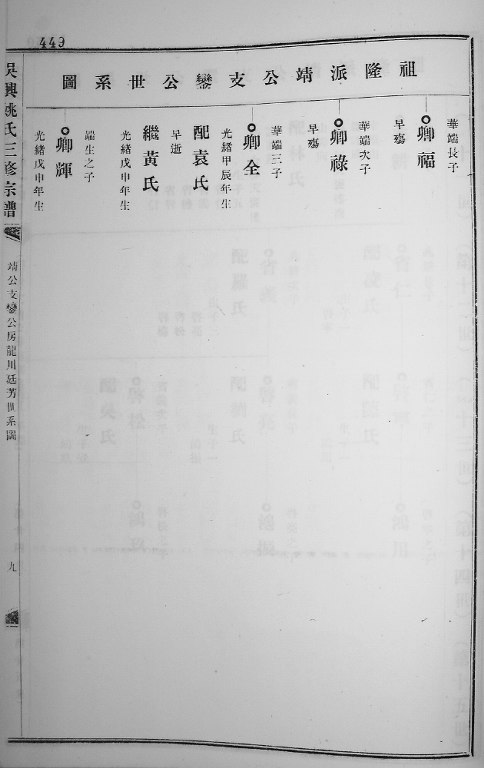 449
祖隆派靖公支鑾公世系圖
華端長子
卿福
早殤
華端次子
卿祿
早殤
華端三子
卿全
光緒甲辰年生
配袁氏
早逝
繼黃氏
光緒戊申年生
端生之子
卿輝
光緒戊申年生
吳興姚氏三修宗譜
靖公支鑾公房龍川廷芳世系圖
九